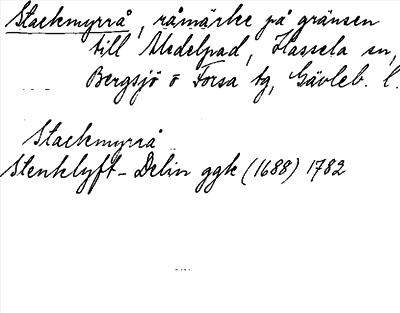 Stackmyrrå, råmärke på gränsen
till Medelpad, Hassela sn,
Bergsjö o Forsa tg, Gävleb. l.
Stackmyrrå
Stenklyft-Delin ggk (1688) 1782